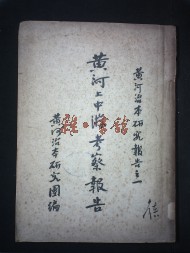 黄河治本研究報告之一
黄河上中游考察報告
黄河治本研究團編